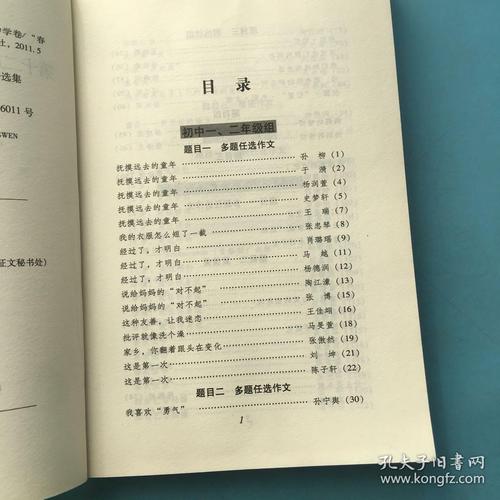 学卷/“春
社, 2011.5
选集
6011 号
WEN
征文秘书处)
目 录
初中一、二年级组
题目一 多题任选作文
抚摸远去的童年 孙 柳 (1)
抚摸远去的童年 于 漪 (2)
抚摸远去的童年 杨润萱 (4)
抚摸远去的童年 史梦轩 (5)
抚摸远去的童年 王 瑞 (7)
我的衣服怎么短了一截 张忠琴 (8)
经过了,才明白 肖璐瑶 (9)
经过了,才明白 马 越 (11)
经过了,才明白 杨德润 (12)
说给妈妈的“对不起” 陶江濠 (13)
说给妈妈的“对不起” 张 博 (15)
这种友善,让我迷恋 王佳翊 (16)
批评就像洗个澡 马旻萱 (18)
家乡,你翻着跟头在变化 张傲然 (19)
这是第一次 刘 坤 (21)
这是第一次 陈子轩 (22)
题目二 多题任选作文
我喜欢“勇气” 孙宁舆 (30)
1
孔夫子旧书网
www.kongfz.com